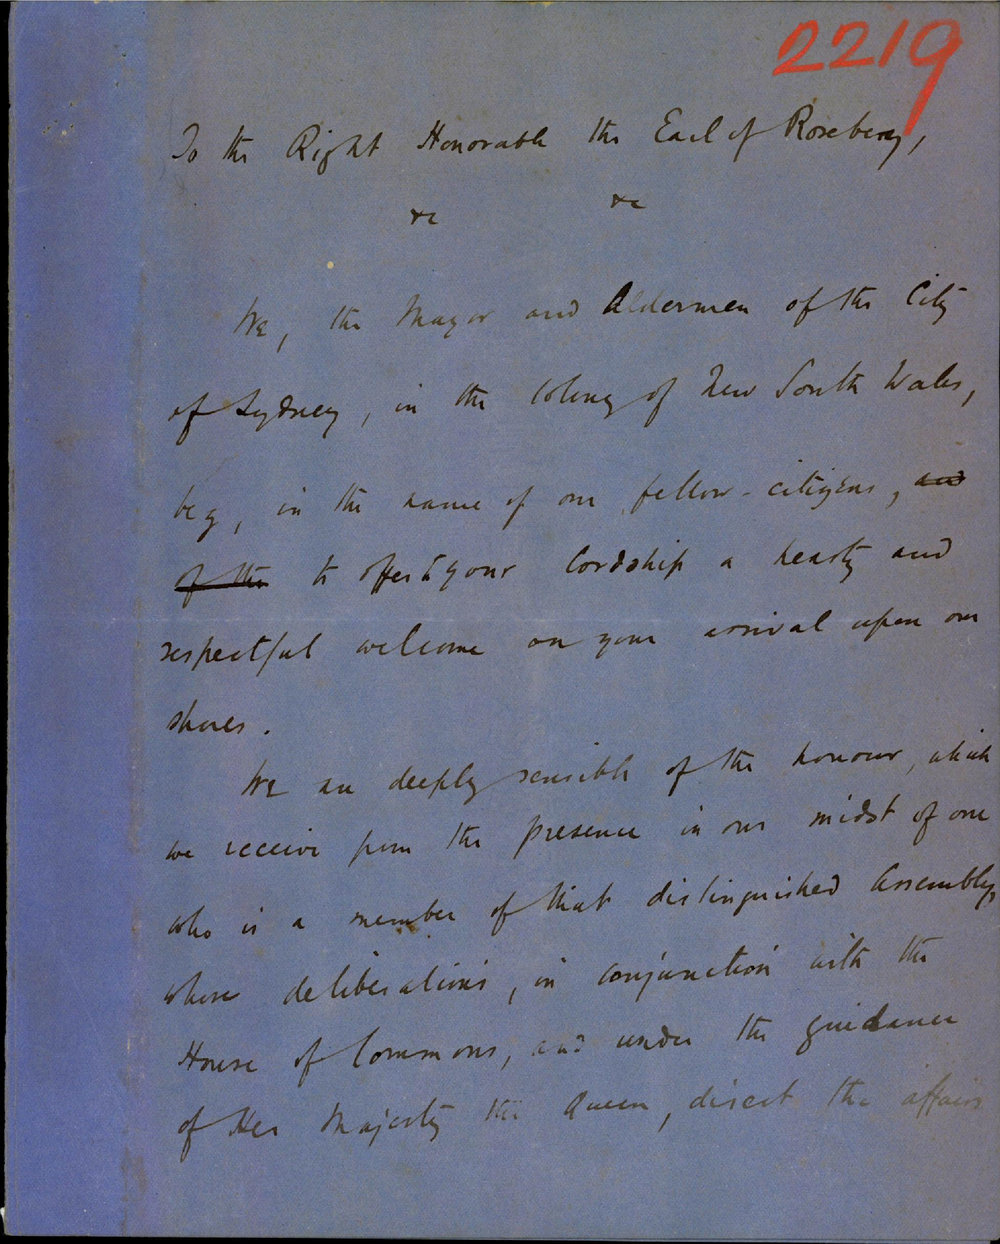 2219
To the Right Honorable the Earl of Rosebery,
&c &c
We, the Mayor and Aldermen of the City
of Sydney, in the Colony of New South Wales,
beg, in the name of our fellow-citizens, and
of the to offer to your Lordship a hearty and
respectful welcome on your arrival upon our
shores.
We are deeply sensible of the honour, which
we receive from the presence in our midst of one
who is a member of that distinguished Assembly,
whose deliberations, in conjunction with the
House of Commons, and under the guidance
of Her Majesty the Queen, direct the affairs